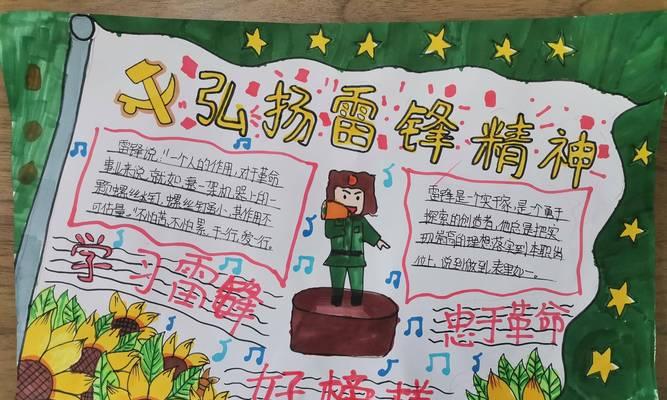 弘扬雷锋精神
雷锋说:“一个人的作用,对于革命
事业来说,就如一架机器上的一
颗螺丝钉。螺丝钉虽小,其作用不
可估量。”不怕苦,不怕累,干一行,爱一行。
雷锋是一个实干家,是一个勇于
探索的创造者,他总是把实
现崇高的理想落实到本职岗
位上,说到做到,表里如一。
学习雷锋
忠于革命
好榜样